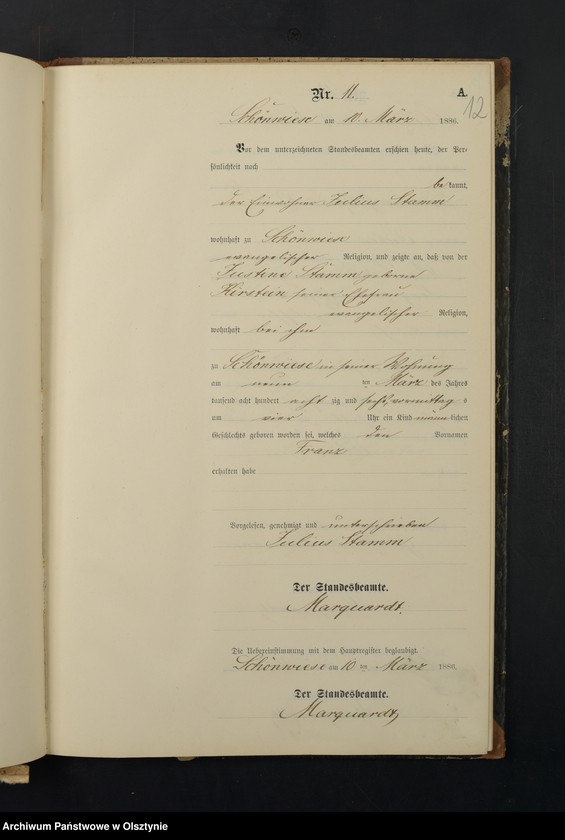 Nr. 11.
A.
12
Schönwiese am 10. März 1886.
Vor dem unterzeichneten Standesbeamten erschien heute, der Per-
sönlichkeit nach
be kannt,
der Einwohner Julius Stamm
wohnhaft zu Schönwiese
evangelischer Religion, und zeigte an, daß von der
Justine Stamm geborne
Kirstein seiner Ehefrau
evangelischer Religion,
wohnhaft bei ihm
zu Schönwiese in seiner Wohnung
am neun ten März des Jahres
tausend acht hundert acht zig und sechs, vormittag s
um vier Uhr ein Kind männ lichen
Geschlechts geboren worden sei, welches den Vornamen
Franz
erhalten habe
Vorgelesen, genehmigt und unterschrieben
Julius Stamm
Der Standesbeamte.
Marquardt.
Die Uebereinstimmung mit dem Hauptregister beglaubigt.
Schönwiese am 10 ten März 1886.
Der Standesbeamte.
Marquardt
Archiwum Państwowe w Olsztynie